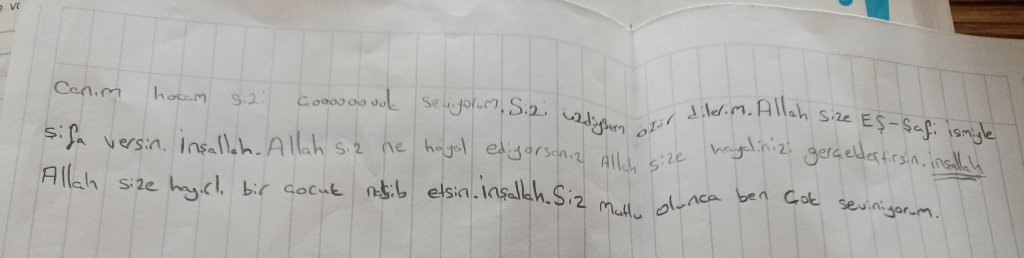 Canım hocam sizi çoooooook seviyorum. Sizi üzdüysem özür dilerim. Allah size EŞ-Şafi ismiyle
şifa versin. İnşallah. Allah siz ne hayal ediyorsanız Allah size hayalinizi gerçekleştirsin. inşallah
Allah size hayırlı bir çocuk nasib etsin. İnşallah. Siz mutlu olunca ben çok seviniyorum.